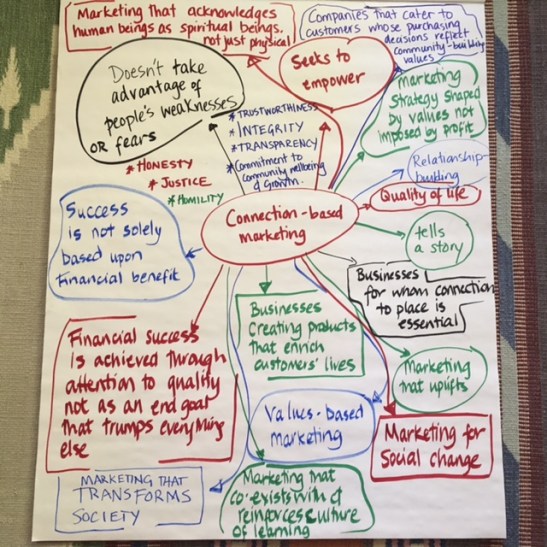 Marketing that acknowledges
human beings as spiritual beings,
not just physical
Companies that cater to
customers whose purchasing
decisions reflect
community-building
values
Seeks to
empower
Doesn't take
advantage of
people's weaknesses
OR fears
marketing
Strategy shaped
by values not
imposed by profit
* TRUSTWORTHINESS
* INTEGRITY
* TRANSPARENCY
* Commitment to
community wellbeing
& Growth.
* HONESTY
* JUSTICE
* HUMILITY
Relationship-
building
Quality of life
Success
is not solely
based upon
financial benefit
Connection-based
marketing
tells
a story
Businesses
for whom connection
to place is
essential
Businesses
Creating products
that enrich
customers' lives
Financial success
is achieved through
attention to quality
not as an end goal
that trumps everything
else
Marketing
that uplifts
Values-based
marketing
Marketing for
Social change
MARKETING THAT
TRANSFORMS
SOCIETY
Marketing that
co-exists with &
reinforces culture
of learning